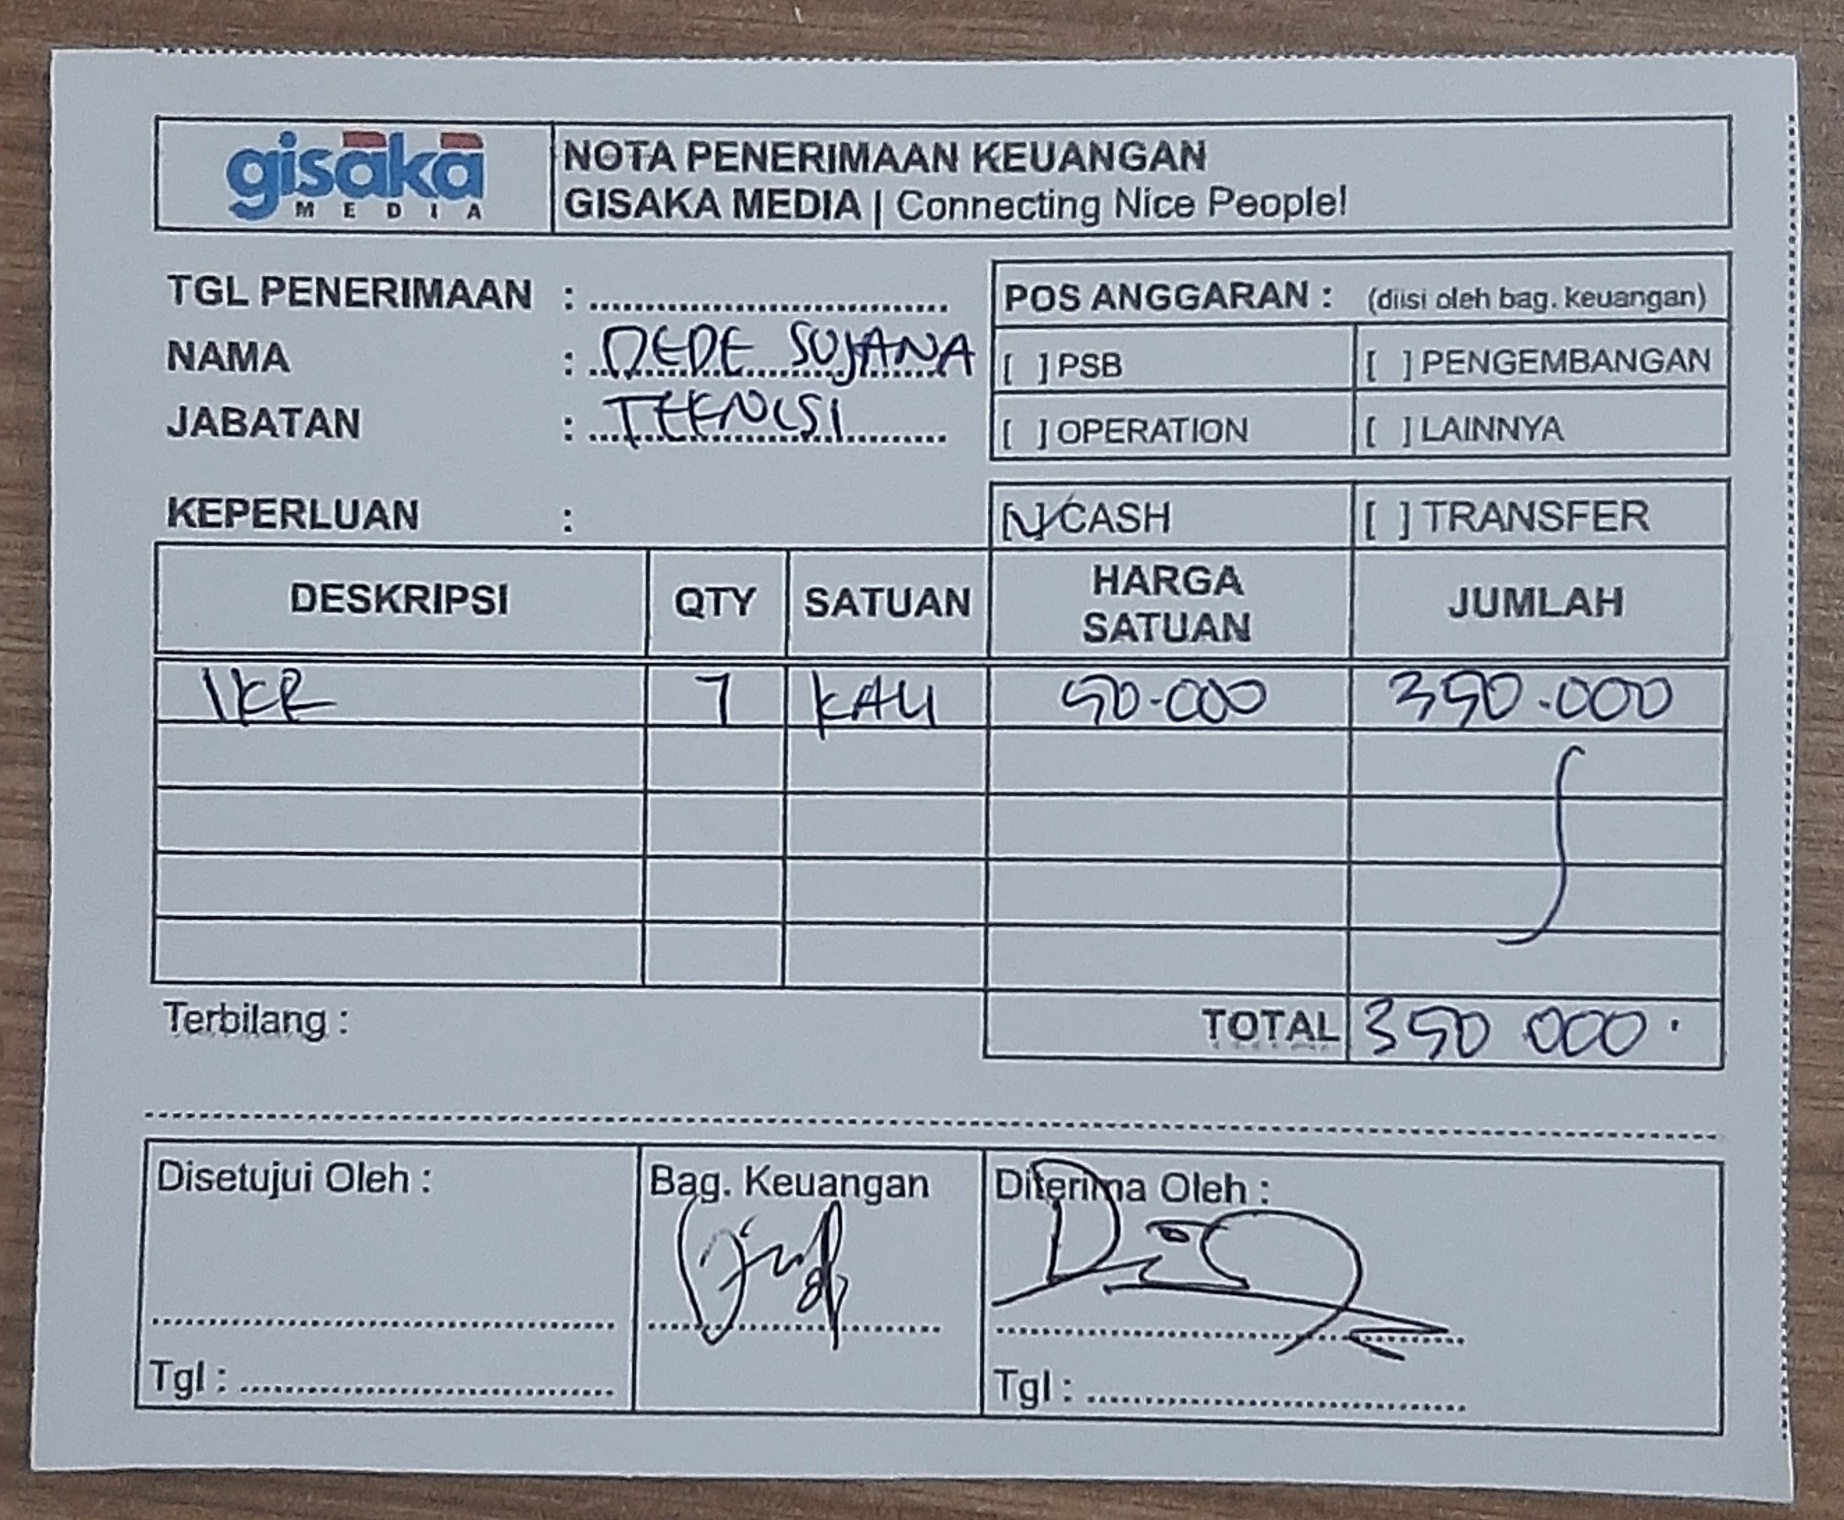 gisaka
MEDIA
NOTA PENERIMAAN KEUANGAN
GISAKA MEDIA | Connecting Nice People!
TGL PENERIMAAN : ....................................
NAMA : DEDE SUJANA
JABATAN : TEKNISI
POS ANGGARAN : (diisi oleh bag. keuangan)
[ ] PSB [ ] PENGEMBANGAN
[ ] OPERATION [ ] LAINNYA
KEPERLUAN :
[✓] CASH [ ] TRANSFER
DESKRIPSI QTY SATUAN HARGA SATUAN JUMLAH
IKR 7 KALI 50.000 350.000
Terbilang :
TOTAL 350 000
Disetujui Oleh : Bag. Keuangan Diterima Oleh :
Tgl : .................................... Tgl : ....................................